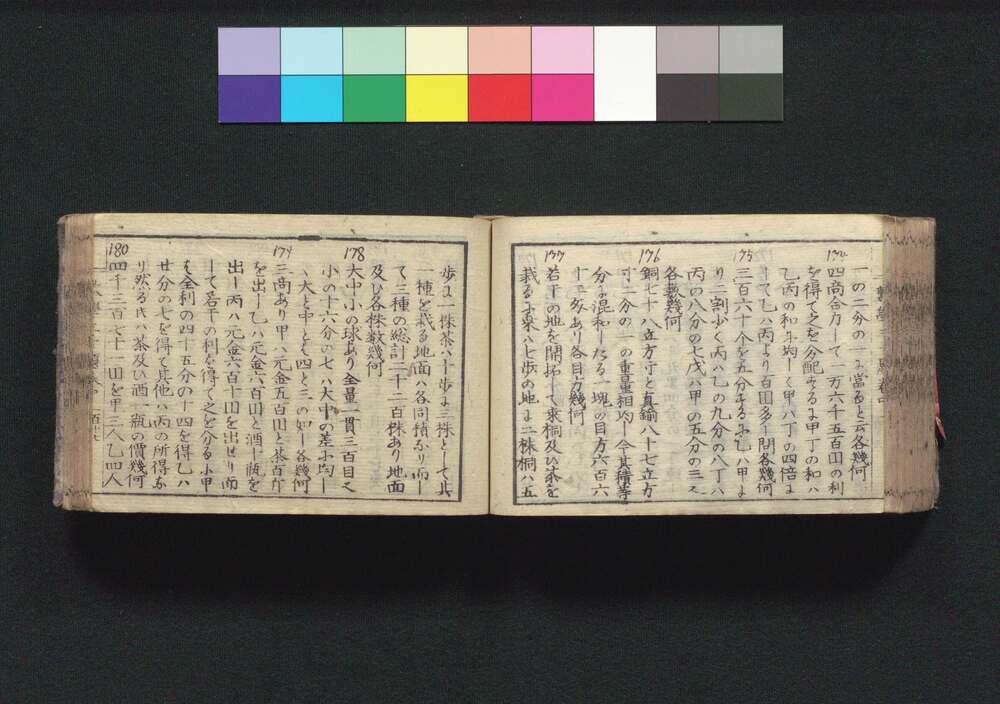 一の二分の一に當ると云各幾何
174
四商合力して一万六千五百円の利
を得て之を分配するに甲丁の和ハ
乙丙の和に均して甲ハ丁の四倍に
して乙ハ丙より百円多し問各幾何
175
三百六十个を五分するに乙ハ甲よ
り二割少く丙ハ乙の九分の八丁ハ
丙の八分の七戊ハ甲の五分の三と
各數幾何
176
銅七十八立方寸と真鍮八十七立方
寸二分の一の重量相均し今其積等
分に混和したる一塊の目方六百六
十二匁あり各目方幾何
177
若干の地を開拓して桑桐及ひ茶を
栽るに桑ハ七歩の地に二株桐ハ五
歩に一株茶ハ十歩に三株として其
一種を栽る地面ハ各同積なり而し
て三種の総計二千二百株あり地面
及ひ各株数幾何
178
大中小の球あり全量一貫三百目と
小の十六分の七ハ大中の差に均し
大と中とハ四と三の如し各幾何
179
三商あり甲ハ元金五百円と茶百斤
を出し乙ハ元金六百円と酒十瓶を
出し丙ハ元金六百十円を出せり而
して若干の利を得て之を分るに甲
ハ全利の四十五分の十四を得乙ハ
廿分の七を得て其他ハ丙の所得な
り然る尓ハ茶及ひ酒一瓶の價幾何
180
四千三百七十一円を甲三人乙四人